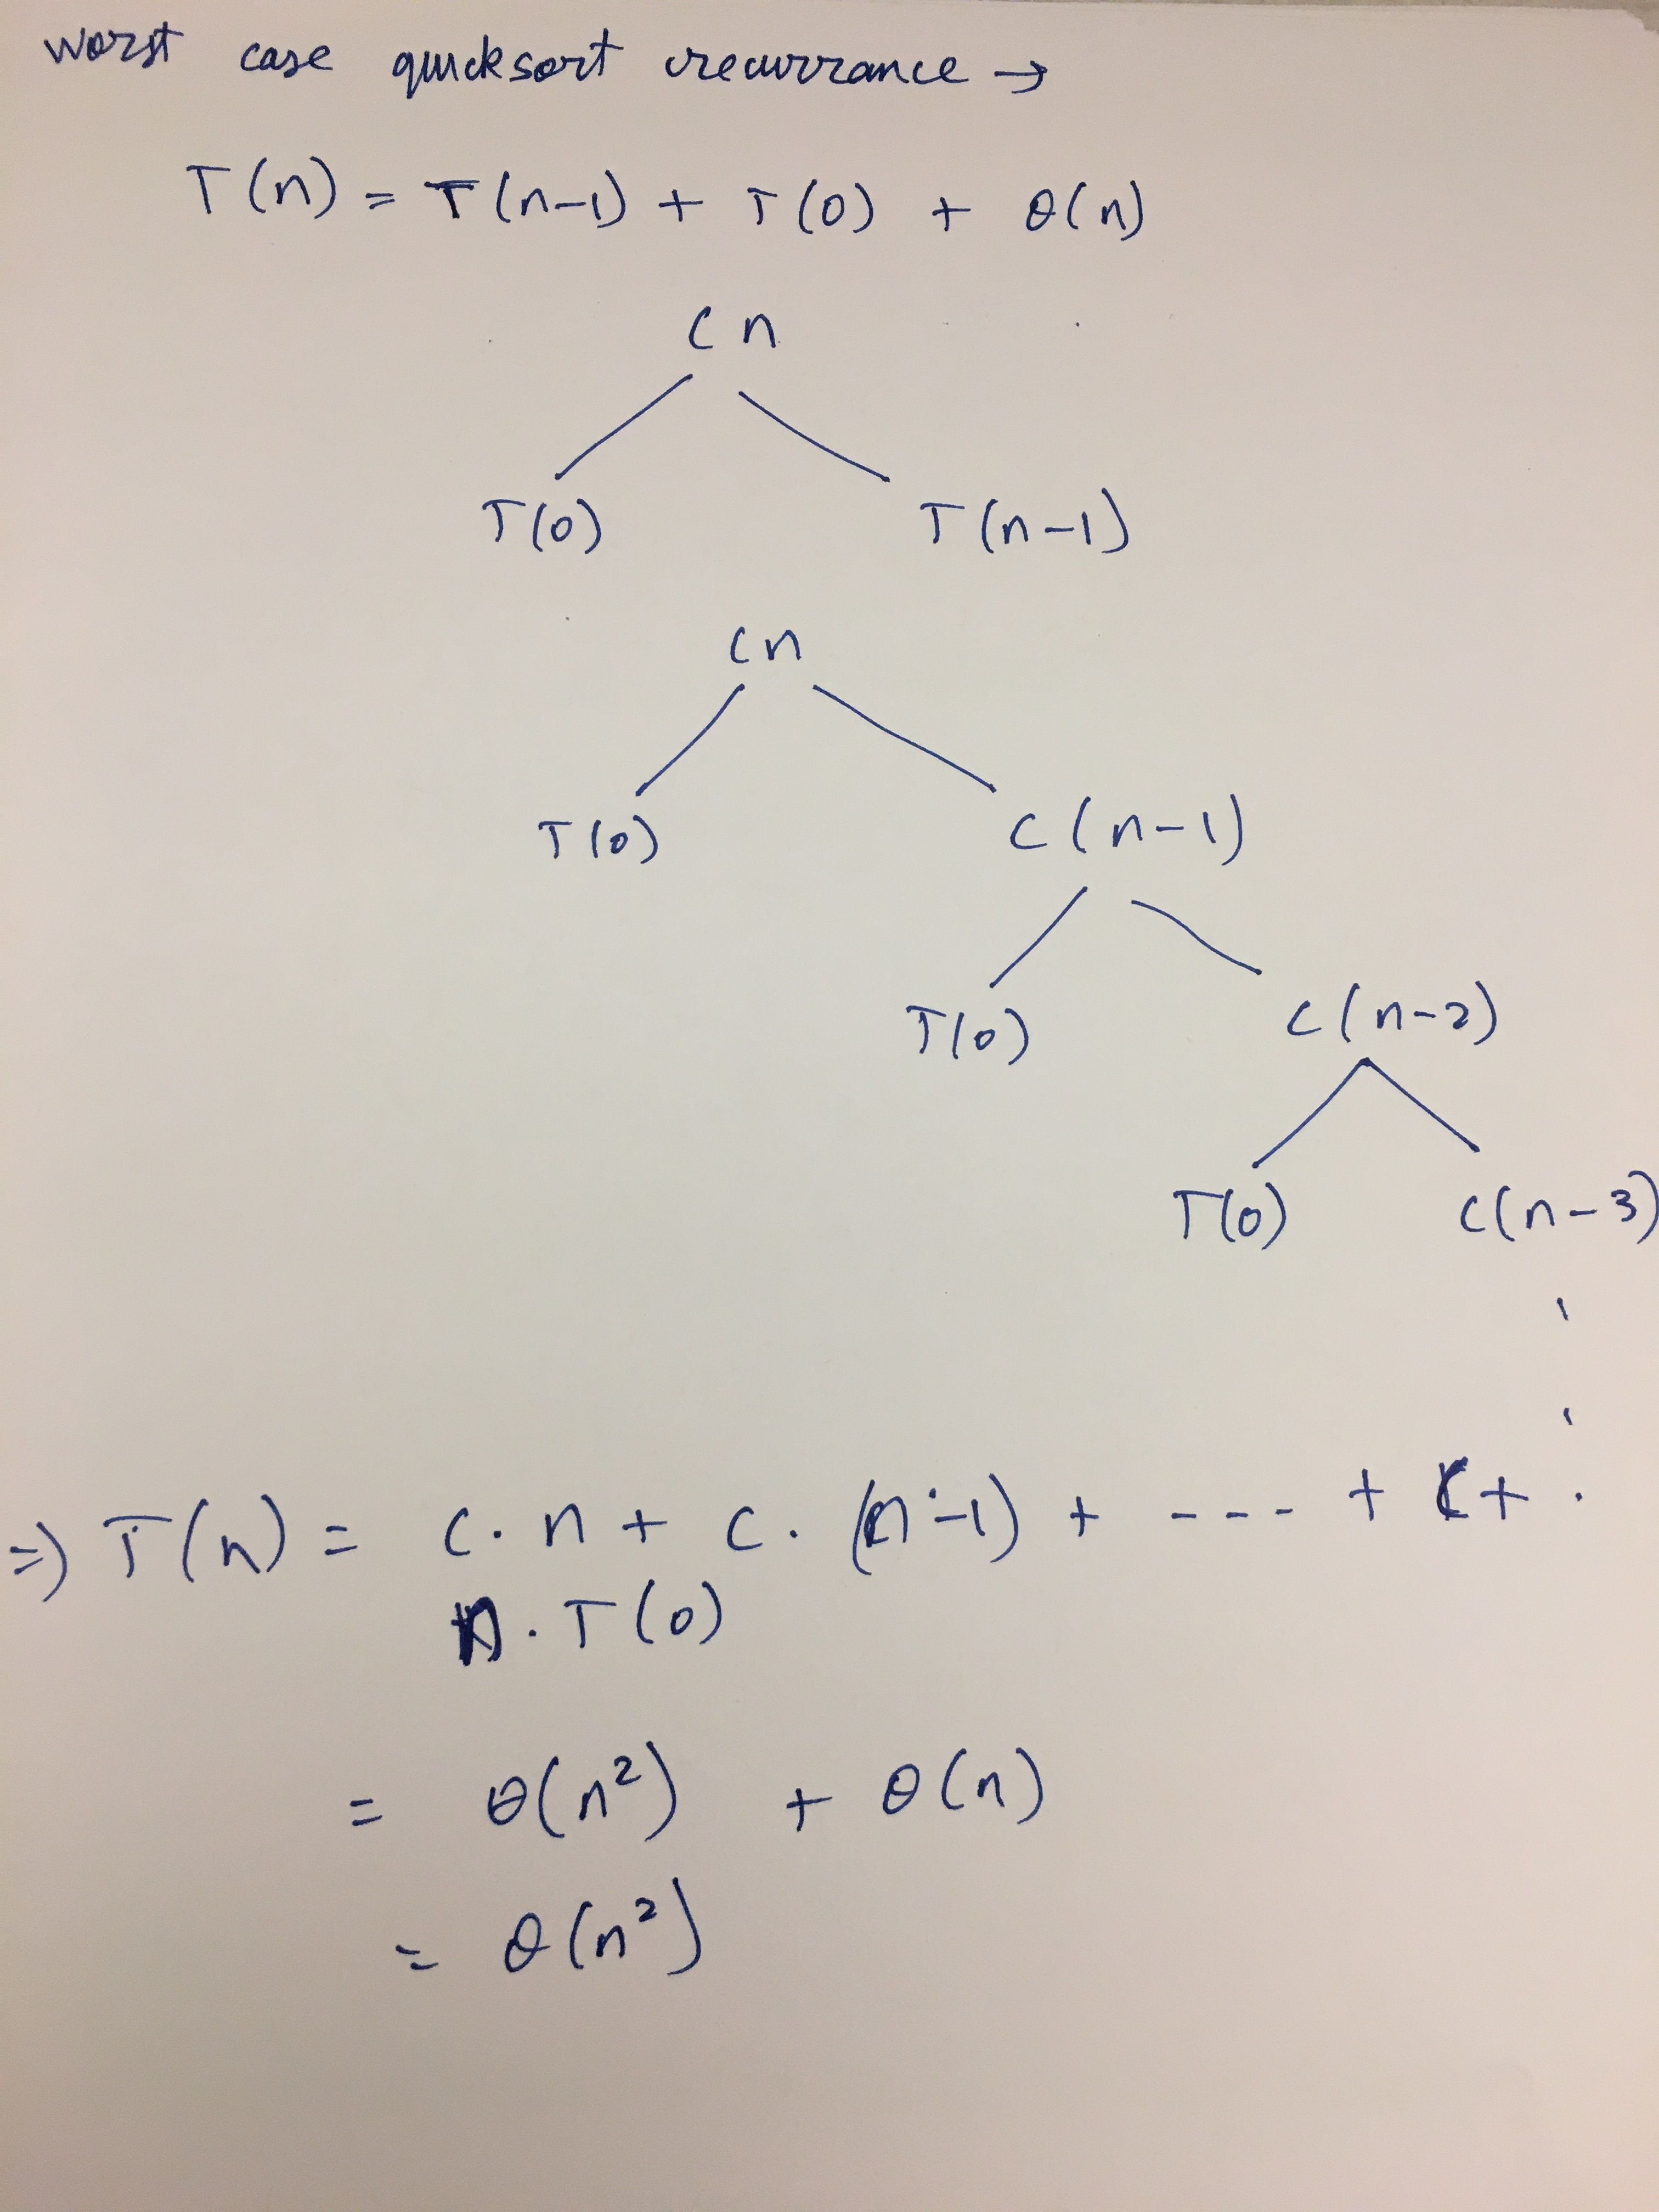 worst case quicksort recurrance →
T(n) = T(n-1) + T(0) + θ(n)
cn
T(0) T(n-1)
cn
T(0) c(n-1)
T(0) c(n-2)
T(0) c(n-3)
⇒ T(n) = c.n + c.(n-1) + ---- + c +
n.T(0)
= θ(n²) + θ(n)
= θ(n²)